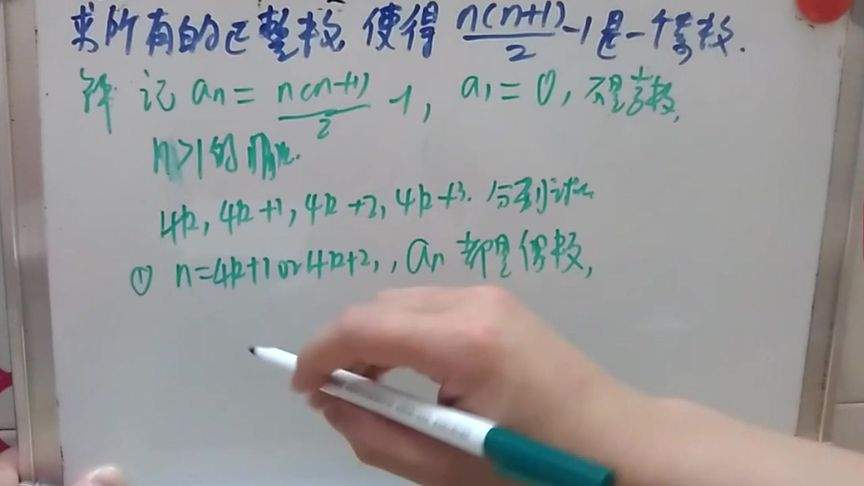 求所有的正整数 使得 n(n+1)/2 -1是一个素数.
解 记 an = n(n+1)/2 -1, a1 = 0, 不是素数,
n>1的情况.
4k, 4k+1, 4k+2, 4k+3. 分别讨论
① n=4k+1 or 4k+2, , an 都是偶数,